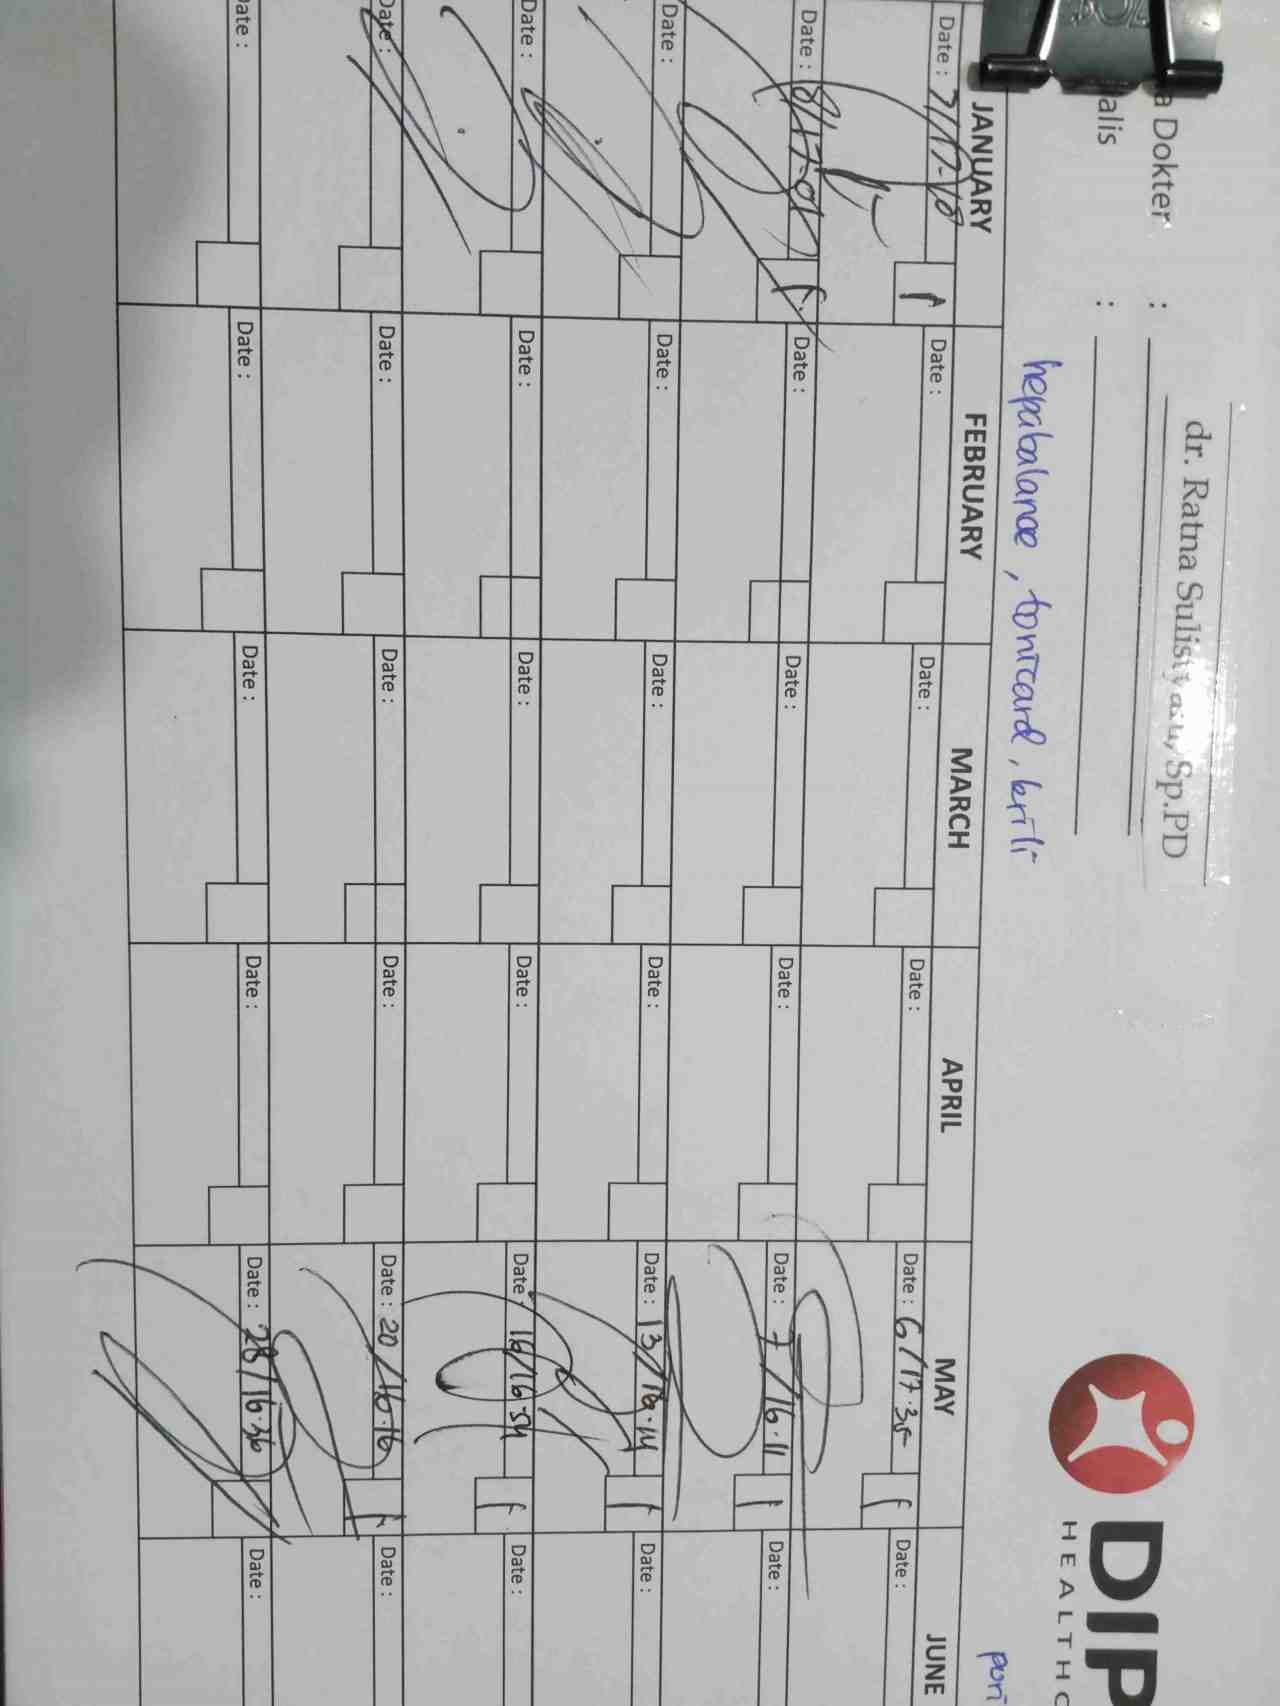 a Dokter : dr. Ratna Sulistyati, Sp.PD
alis :
DIP
HEALTHC
hepabalance, tonicard, krili
pori
JANUARY FEBRUARY MARCH APRIL MAY JUNE
Date : Date : Date : Date : Date : 6/17.35 Date :
Date : Date : Date : Date : Date : 7/16.11 Date :
Date : Date : Date : Date : Date : 13/16.14 Date :
Date : Date : Date : Date : Date : 16/16.54 Date :
Date : Date : Date : Date : Date : 20/16.16 Date :
Date : Date : Date : Date : Date : 28/16.36 Date :